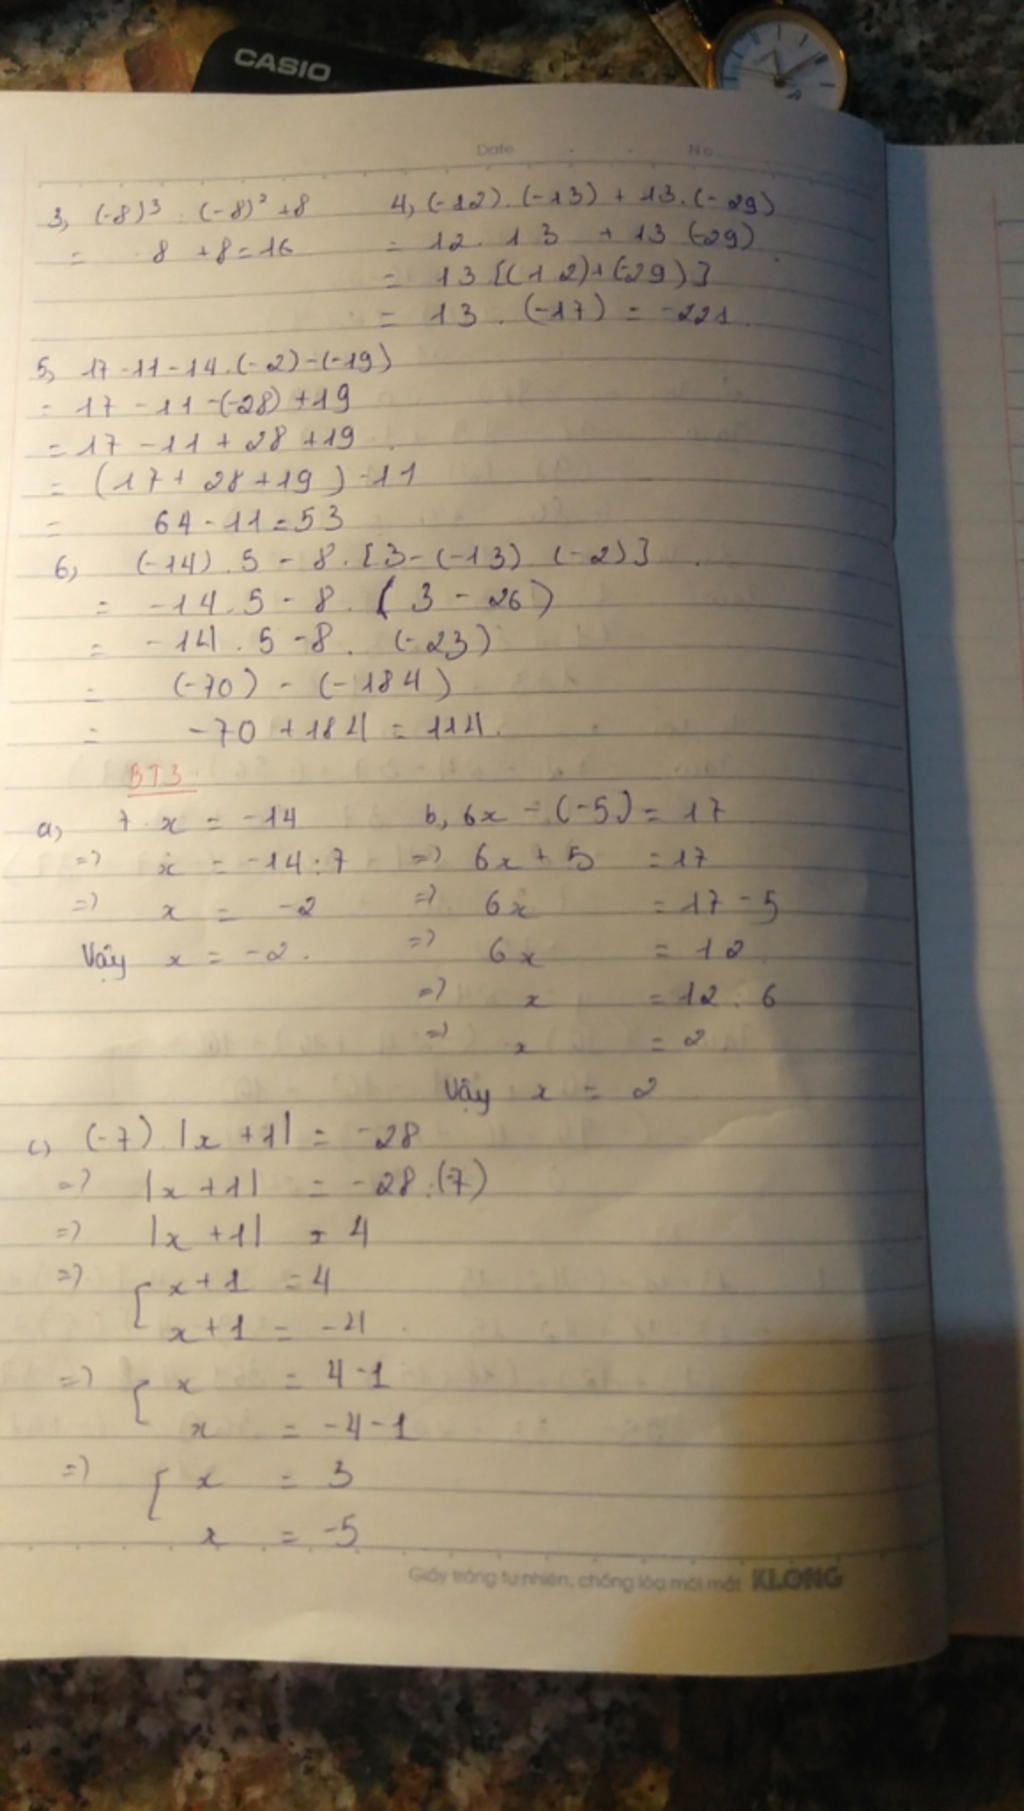 CASIO
Date No
3, (-8)³ : (-8)² + 8
= 8 + 8 = 16
4, (-12). (-13) + 13. (-29)
= 12. 13 + 13 (-29)
= 13 [(12)+(-29)]
= 13 . (-17) = -221.
5, 17-11-14.(-2)-(-19)
= 17 - 11 -(-28) +19
= 17 - 11 + 28 + 19
= (17 + 28 + 19) - 11
= 64 - 11 = 53
6, (-14) . 5 - 8 . [3 - (-13) (-2)]
= -14. 5 - 8 . (3 - 26)
= -14 . 5 - 8 . (-23)
= (-70) - (-184)
= -70 + 184 = 114.
BT3
a, 7. x = -14
=> x = -14 : 7
=> x = -2
Vậy x = -2.
b, 6x - (-5) = 17
=> 6x + 5 = 17
=> 6x = 17 - 5
=> 6x = 12
=> x = 12 : 6
=> x = 2
Vậy x = 2
c, (-7) . |x + 1| = -28
=> |x + 1| = -28 : (-7)
=> |x + 1| = 4
=> [ x + 1 = 4
x + 1 = -4
=> [ x = 4 - 1
x = -4 - 1
=> [ x = 3
x = -5
Giấy trắng tự nhiên, chống lóa mỏi mắt KLONG